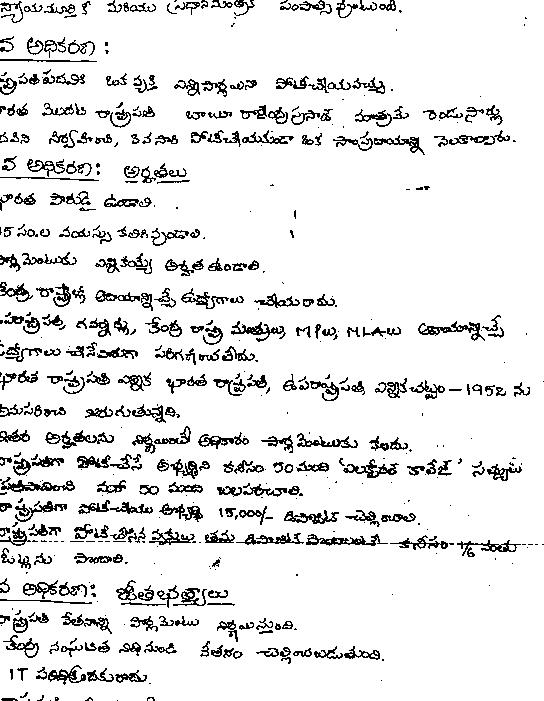 న్యాయమూర్తికి మరియు ప్రధానమంత్రికి పంపాల్సి వుంటుంది.
వ అధికరణ :
ష్ట్రపతి పదవికి ఒక వ్యక్తి ఎన్నిసార్లయినా పోటీచేయవచ్చు.
భారత మొదటి రాష్ట్రపతి బాబూ రాజేంద్రప్రసాద్ మాత్రమే రెండుసార్లు
పదవిని నిర్వహించి, 3వ సారి పోటీచేయకుండా ఒక సాంప్రదాయాన్ని నెలకొల్పారు.
వ అధికరణ : అర్హతలు
భారత పౌరుడై ఉండాలి.
35 సం.ల వయస్సు కలిగివుండాలి.
పార్లమెంటుకు ఎన్నికయ్యే అర్హత ఉండాలి.
కేంద్ర, రాష్ట్రాల్లో ఆదాయాన్నిచ్చే ఉద్యోగాలు చేయరాదు.
ఉపరాష్ట్రపతి, గవర్నర్లు, కేంద్ర రాష్ట్ర మంత్రులు, MPలు, MLAలు ఆదాయాన్నిచ్చే
ఉద్యోగాలు చేసేవారుగా పరిగణించలేదు.
భారత రాష్ట్రపతి ఎన్నిక భారత రాష్ట్రపతి, ఉపరాష్ట్రపతి ఎన్నిక చట్టం - 1952 ను
అనుసరించి జరుగుతున్నది.
ఇతర అర్హతలను నిర్ణయించే అధికారం పార్లమెంటుకు కలదు.
రాష్ట్రపతిగా పోటీచేసే అభ్యర్థిని కనీసం 50 మంది 'ఎలక్టోరల్ కాలేజీ' సభ్యులు
ప్రతిపాదించి మరో 50 మంది బలపరచాలి.
రాష్ట్రపతిగా పోటీచేయు అభ్యర్థి 15,000/- డిపాజిట్ చెల్లించాలి.
రాష్ట్రపతిగా పోటీచేసిన వ్యక్తులు తమ డిపాజిట్ పొందుటకు కనీసం 1/6 వంతు
ఓట్లను పొందాలి.
వ అధికరణ : జీతభత్యాలు
రాష్ట్రపతి వేతనాన్ని పార్లమెంటు నిర్ణయిస్తుంది.
కేంద్ర సంఘటిత నిధి నుండి వేతనం చెల్లించబడుతుంది.
IT పరిధిలోనికి రాదు.